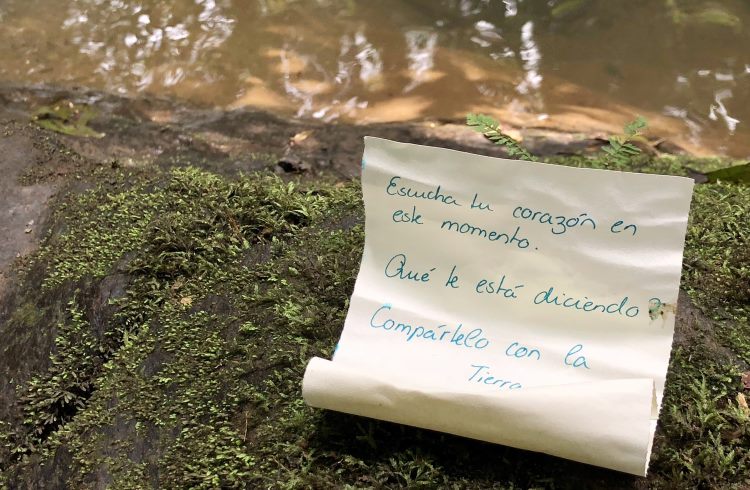 Escucha tu corazón en
este momento.
Qué te está diciendo?
Compártelo con la
Tierra